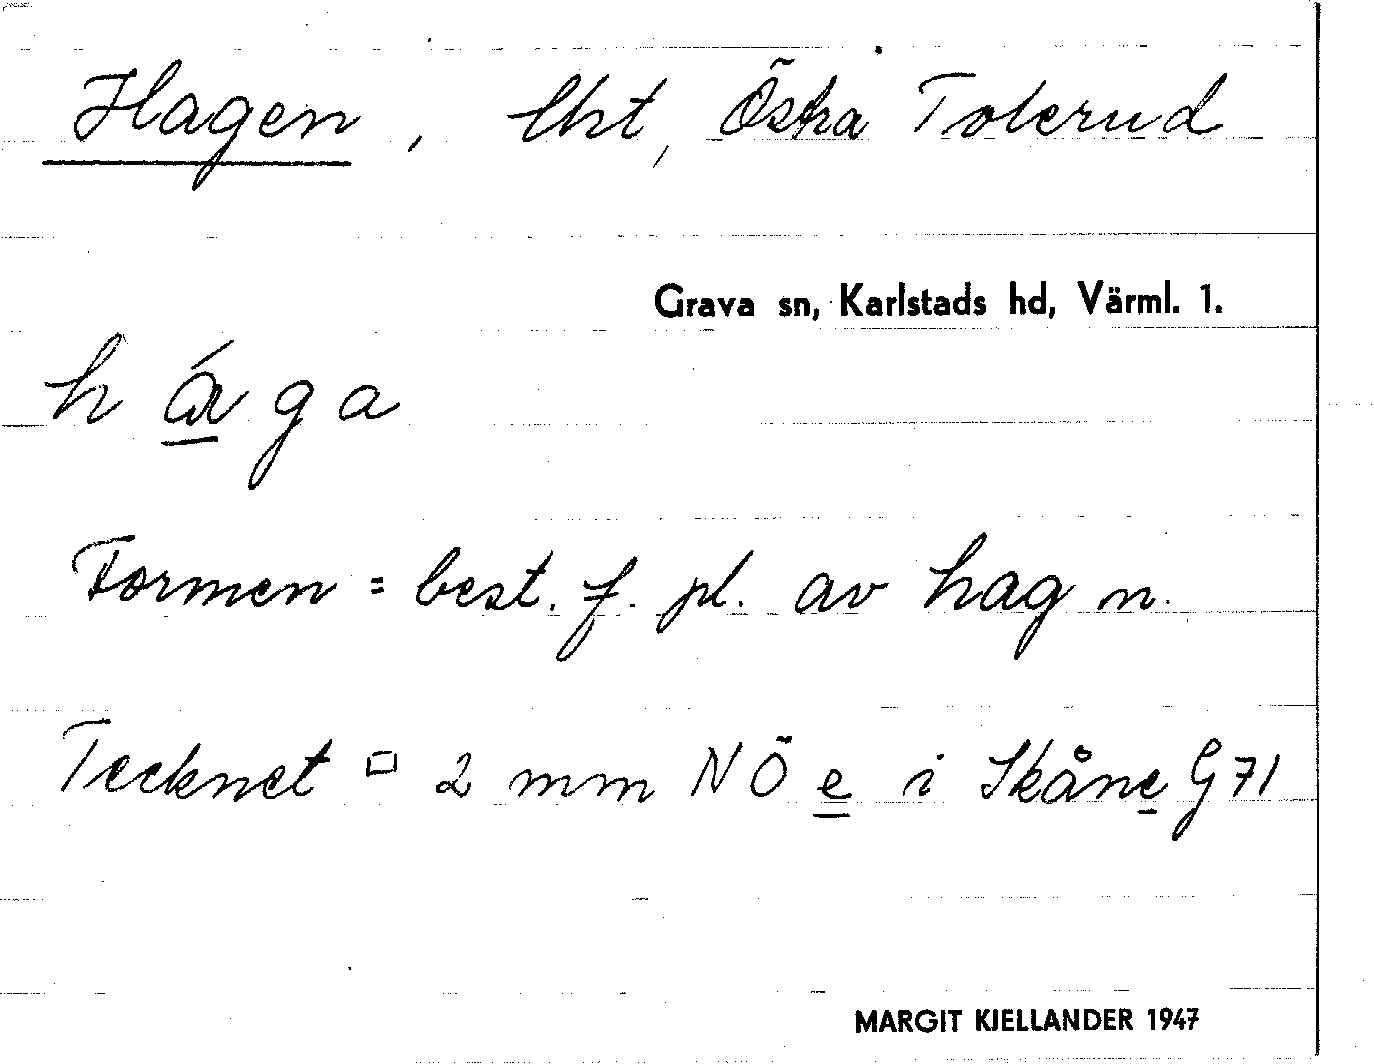 Hagen, lht, Östra Tolerud
Grava sn, Karlstads hd, Värml. 1.
h á̱ g a
Formen = best. f. pl. av hag n.
Tecknet □ 2 mm NÖ e̲ i Skåne̲ G 71
MARGIT KJELLANDER 1947